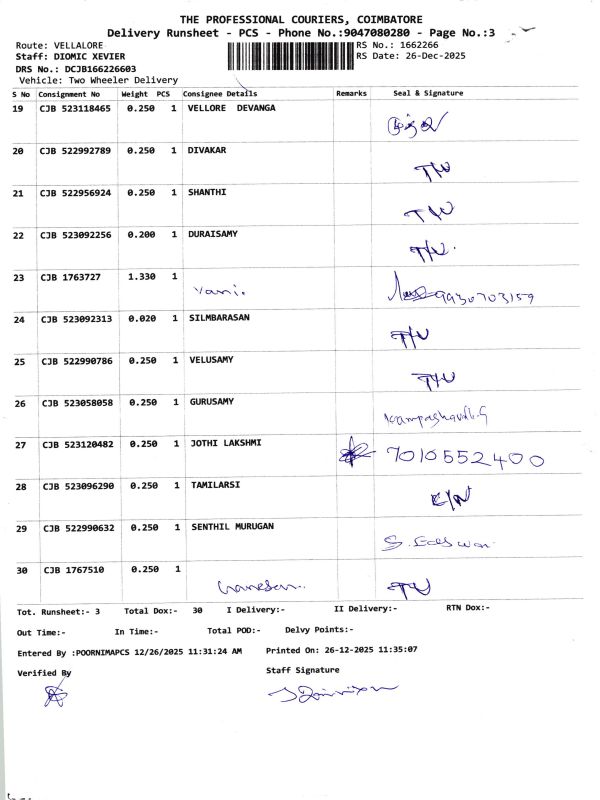 THE PROFESSIONAL COURIERS, COIMBATORE
Delivery Runsheet - PCS - Phone No.:9047080280 - Page No.:3
Route: VELLALORE RS No.: 1662266
Staff: DIOMIC XEVIER RS Date: 26-Dec-2025
DRS No.: DCJB166226603
Vehicle: Two Wheeler Delivery
S No Consignment No Weight PCS Consignee Details Remarks Seal & Signature
19 CJB 523118465 0.250 1 VELLORE DEVANGA
20 CJB 522992789 0.250 1 DIVAKAR T/W
21 CJB 522956924 0.250 1 SHANTHI T/W
22 CJB 523092256 0.200 1 DURAISAMY T/W.
23 CJB 1763727 1.330 1 Vani. 9930703159
24 CJB 523092313 0.020 1 SILMBARASAN T/W
25 CJB 522990786 0.250 1 VELUSAMY T/W
26 CJB 523058058 0.250 1 GURUSAMY
27 CJB 523120482 0.250 1 JOTHI LAKSHMI 7010552400
28 CJB 523096290 0.250 1 TAMILARSI
29 CJB 522990632 0.250 1 SENTHIL MURUGAN
30 CJB 1767510 0.250 1
Tot. Runsheet:- 3 Total Dox:- 30 I Delivery:- II Delivery:- RTN Dox:-
Out Time:- In Time:- Total POD:- Delvy Points:-
Entered By :POORNIMAPCS 12/26/2025 11:31:24 AM Printed On: 26-12-2025 11:35:07
Verified By Staff Signature